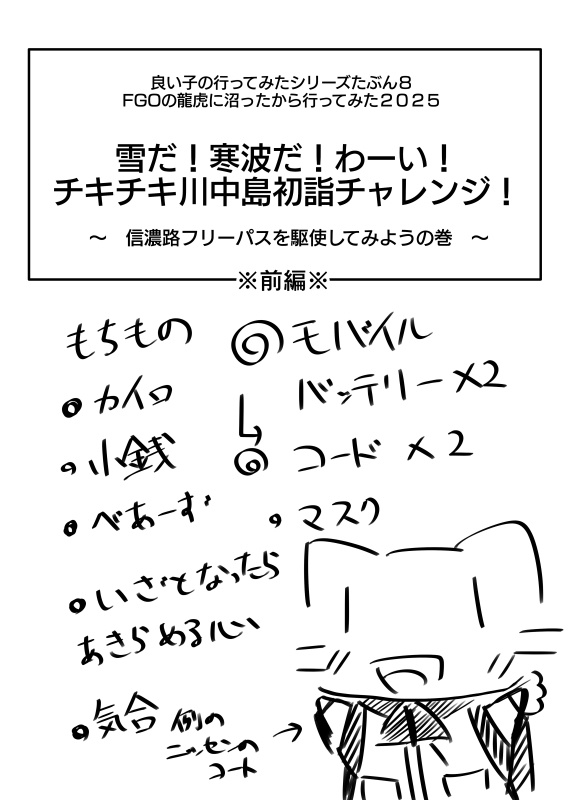 良い子の行ってみたシリーズたぶん8
FGOの龍虎に沼ったから行ってみた2025
雪だ!寒波だ!わーい!
チキチキ川中島初詣チャレンジ!
~ 信濃路フリーパスを駆使してみようの巻 ~
※前編※
もちもの
カイロ
小銭
べあーず
いざとなったら
あきらめる心
気合
モバイル
バッテリー×2
コード×2
マスク
例の
ニッセンの
コート